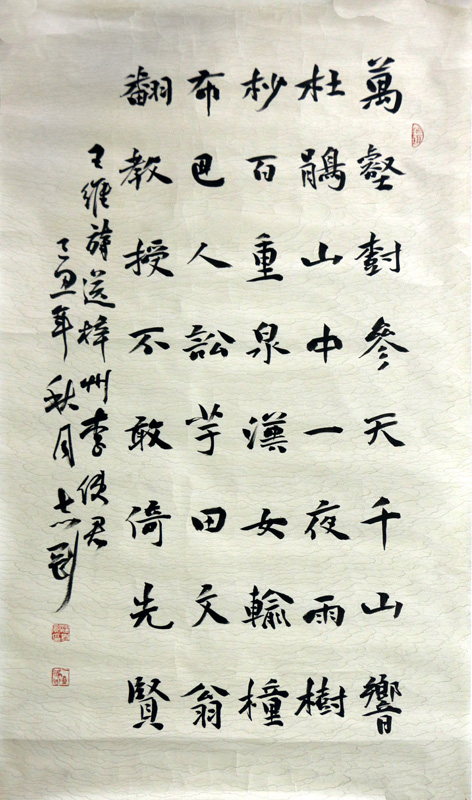 萬壑樹參天千山響
杜鵑山中一夜雨樹
杪百重泉漢女輸橦
布巴人訟芋田文翁
翻教授不敢倚先賢
王維詩送梓州李使君
丁丑年秋月志剛